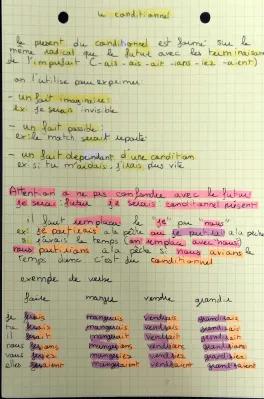 le conditionnel
le présent du conditionnel est formé sur le
même radical que le futur avec les terminaisons
de l'imparfait (-ais -ais -ait -ions -iez -aient)
on l'utilise pour exprimer
- un fait imaginaire:
ex: je serais invisible
- un fait possible:
ex: le match serait reporté
- un fait dépendant d'une condition
ex: si tu m'aidais, j'irais plus vite
Attention a ne pas confondre avec le futur
je serai: futur je serais: conditionnel présent
il faut remplacer le "je" par "nous"
ex: je partirais a la pêche ou je partirai a la pêche
si j'avais le temps (on remplace avec nous)
nous partirions a la pêche si nous avions le
temps donc c'est du conditionnel
exemple de verbe
faire manger vendre grandir
je ferais mangerais vendrais grandirais
tu ferais mangerais vendrais grandirais
il ferait mangerait vendrait grandirait
nous ferions mangerions vendrions grandirions
vous feriez mangeriez vendriez grandiriez
elles feraient mangeraient vendraient grandiraient